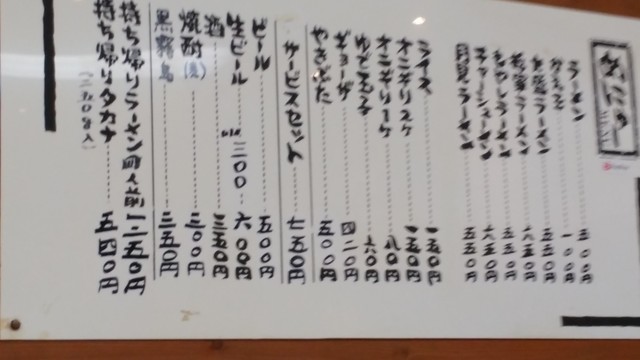 ラーメン 五〇〇円
一〇〇円
ラーメン 五五〇円
ラーメン 六五〇円
もやしラーメン 五五〇円
チャーシューメン 六五〇円
ラーメン 五五〇円
ライス 一五〇円
オニギリ2ケ 一五〇円
オニギリ1ケ 八〇円
ゆで玉子 六〇円
ギョーザ 四二〇円
やきぶた 五〇〇円
サービスセット 七五〇円
ビール 五〇〇円
生ビール 六〇〇円
小 三〇〇
酒 三五〇円
焼酎 三〇〇円
黒霧島 三五〇円
持ち帰りラーメン四人前 一、二五〇円
持ち帰りタカナ 五四〇円
(二五〇g入)